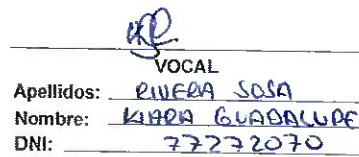 VOCAL
Apellidos: RIVERA SOSA
Nombre: KIARA GUADALUPE
DNI: 77272070